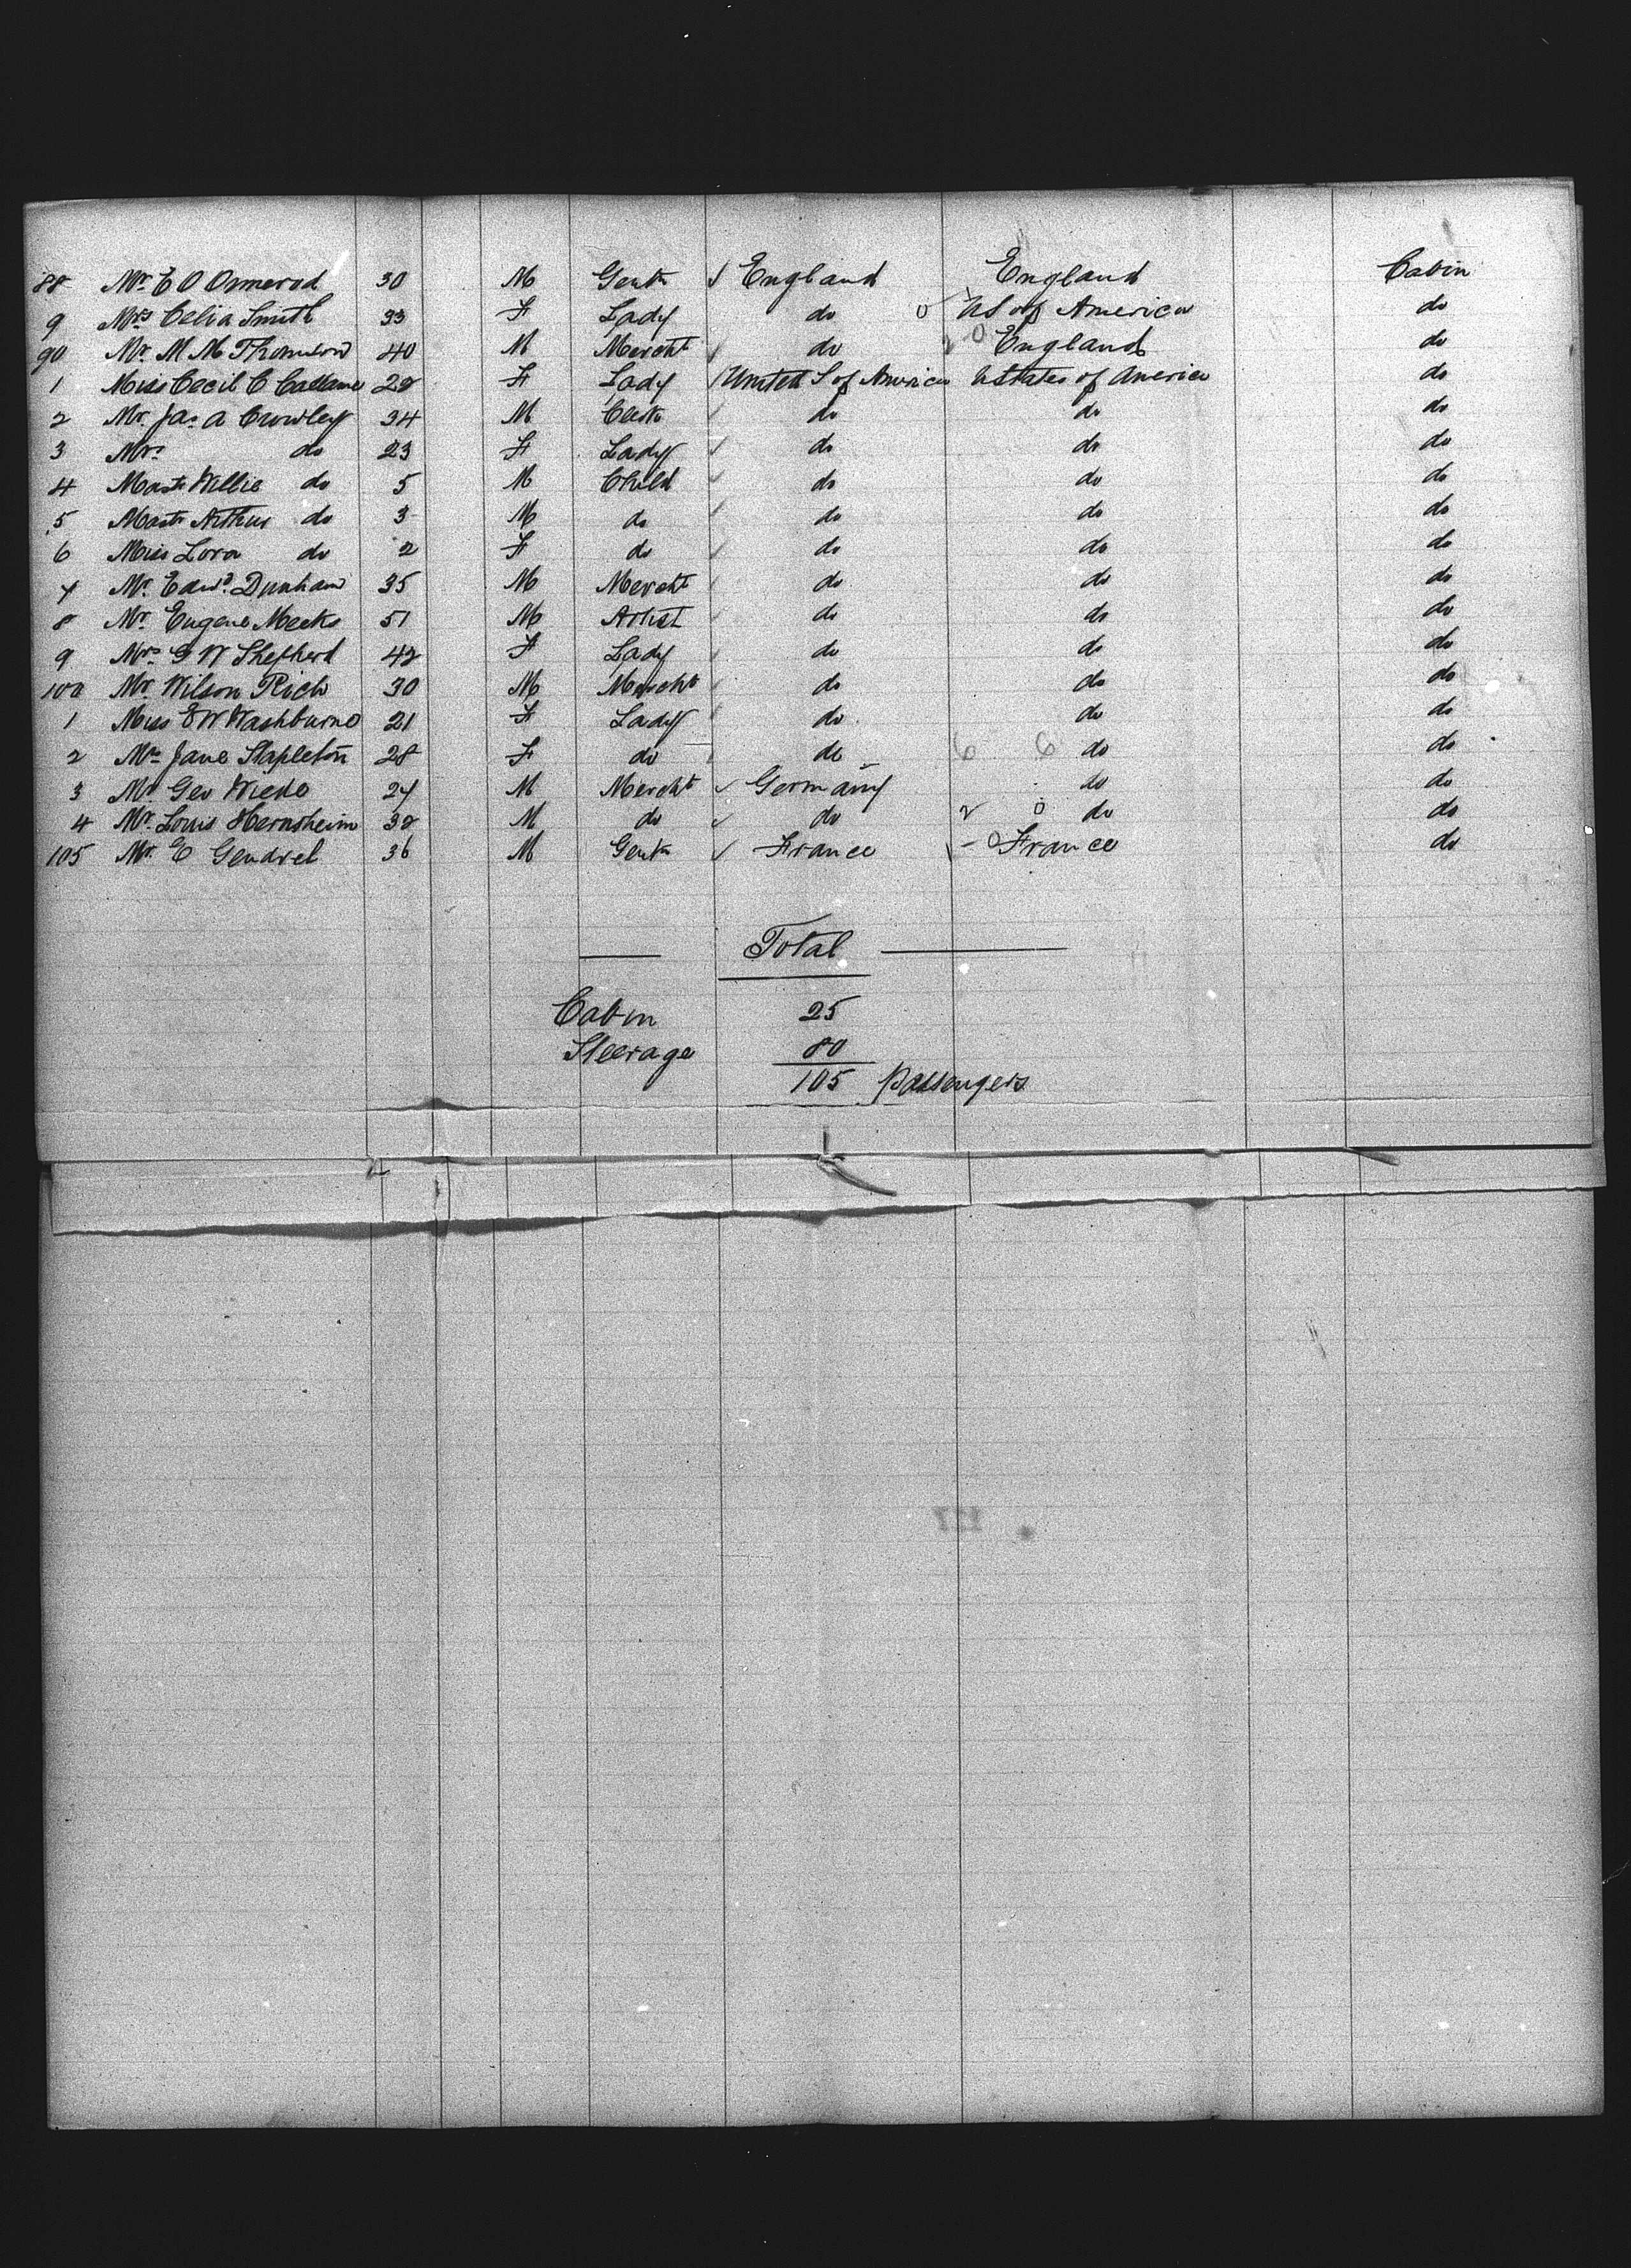 88 Mr. E O Ormerod 30 M Gentn England England Cabin
9 Mrs Celia Smith 33 F Lady do US of America do
90 Mr. M M Thomson 40 M Mercht do England do
1 Miss Cecil C 22 F Lady United S of America UStates of America do
2 Mr. Jas. A Crowley 34 M Clerk do do do
3 Mrs. do 23 F Lady do do do
4 Mastr Willie do 5 M Child do do do
5 Mastr Arthur do 3 M do do do do
6 Miss Lora do 2 F do do do do
7 Mr. Edwd. Dunham 35 M Mercht do do do
8 Mr. Eugene Meeks 51 M Artist do do do
9 Mrs G W Shepherd 42 F Lady do do do
100 Mr. Wilson Rich 30 M Mercht do do do
1 Miss E W Washburne 21 F Lady do do do
2 Mrs Jane Stapleton 28 F do do 6 6 do do
3 Mr Geo 24 M Mercht Germany do do
4 Mr. Louis Hernsheim 32 M do do 2 0 do do
105 Mr. E Gendrel 36 M Gentn France France do
Total
Cabin 25
Steerage 80
105 Passengers